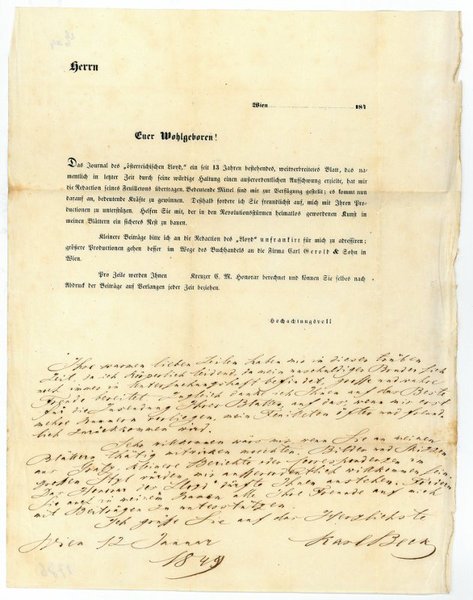 Herrn
Wien 184
Euer Wohlgeboren!
Das Journal des „österreichischen Lloyd,“ ein seit 13 Jahren bestehendes, weitverbreitetes Blatt, das na-
mentlich in letzter Zeit durch seine würdige Haltung einen außerordentlichen Aufschwung erzielte, hat mir
die Redaction seines Feuilletons übertragen. Bedeutende Mittel sind mir zur Verfügung gestellt; es kommt nun
darauf an, bedeutende Kräfte zu gewinnen. Deßhalb fordere ich Sie freundlichst auf, mich mit Ihren Pro-
ductionen zu unterstützen. Helfen Sie mir, der in den Revolutionsstürmen heimatlos gewordenen Kunst in
meinen Blättern ein sicheres Nest zu bauen.
Kleinere Beiträge bitte ich an die Redaction des „Lloyd“ unfrankirt für mich zu adressiren;
größere Productionen gehen besser im Wege des Buchhandels an die Firma Carl Gerold & Sohn in
Wien.
Pro Zeile werden Ihnen Kreuzer C. M. Honorar berechnet und können Sie selbes nach
Abdruck der Beiträge auf Verlangen jeder Zeit beziehen.
Hochachtungsvoll
Ihre warmen lieben Zeilen haben mir in dieser trüben
Zeit, da ich körperlich leidend, da mein unschuldiger Bruder sich
noch immer in Untersuchungshaft befindet, große und wahre
Freude bereitet. Zugleich dankt ich Ihnen auf das Beste
für die Zusendung Ihres Blattes, auf das, wenn mir erst
mehre Nummern vorliegen, mein
lich zurückkommen wird.
Sehr willkommen wär's mir wenn Sie an meinen
Blättern thätig mitwirken möchten. Bilder und Skizzen
aus Gratz, kleinere Berichte oder Correspondenzen in
großem Styl würden mir außerordentlich willkommen sein.
Das Honorar des Lloyd dürfte Ihnen anstehen.
Sie auch in meinem Namen alle Ihre Freunde auf mich
mit Beiträgen zu unterstützen.
Ich grüße Sie auf das Herzlichste
Wien 12 Januar
1849
Karl Beck